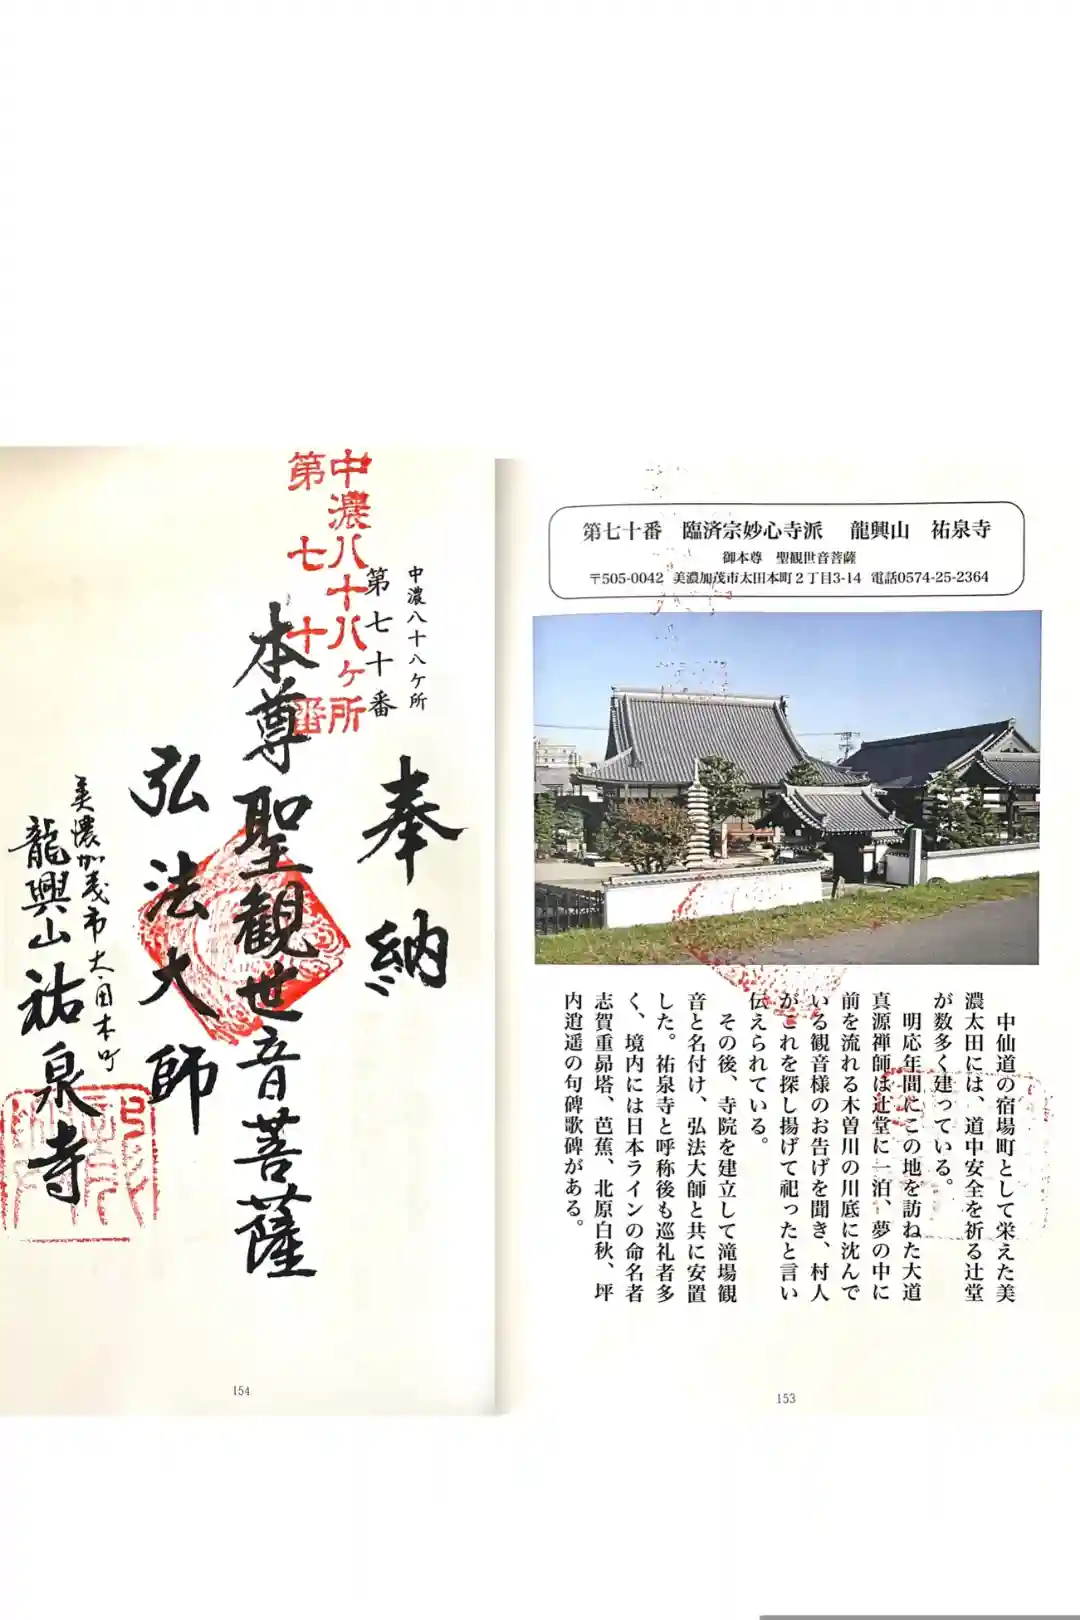 第七十番 臨済宗妙心寺派 龍興山 祐泉寺
御本尊 聖観世音菩薩
〒505-0042 美濃加茂市太田本町２丁目3-14 電話0574-25-2364
中仙道の宿場町として栄えた美
濃太田には、道中安全を祈る辻堂
が数多く建っている。
明応年間にこの地を訪ねた大道
真源禅師は辻堂に一泊、夢の中に
前を流れる木曽川の川底に沈んで
いる観音様のお告げを聞き、村人
がこれを探し揚げて祀ったと言い
伝えられている。
その後、寺院を建立して滝場観
音と名付け、弘法大師と共に安置
した。祐泉寺と呼称後も巡礼者多
く、境内には日本ラインの命名者
志賀重昴塔、芭蕉、北原白秋、坪
内逍遥の句碑歌碑がある。
153
中濃八十八ケ所
第七十番
奉納
中濃八十八ヶ所
第七十番
本尊聖観世音菩薩
弘法大師
美濃加茂市太田本町
龍興山祐泉寺
154